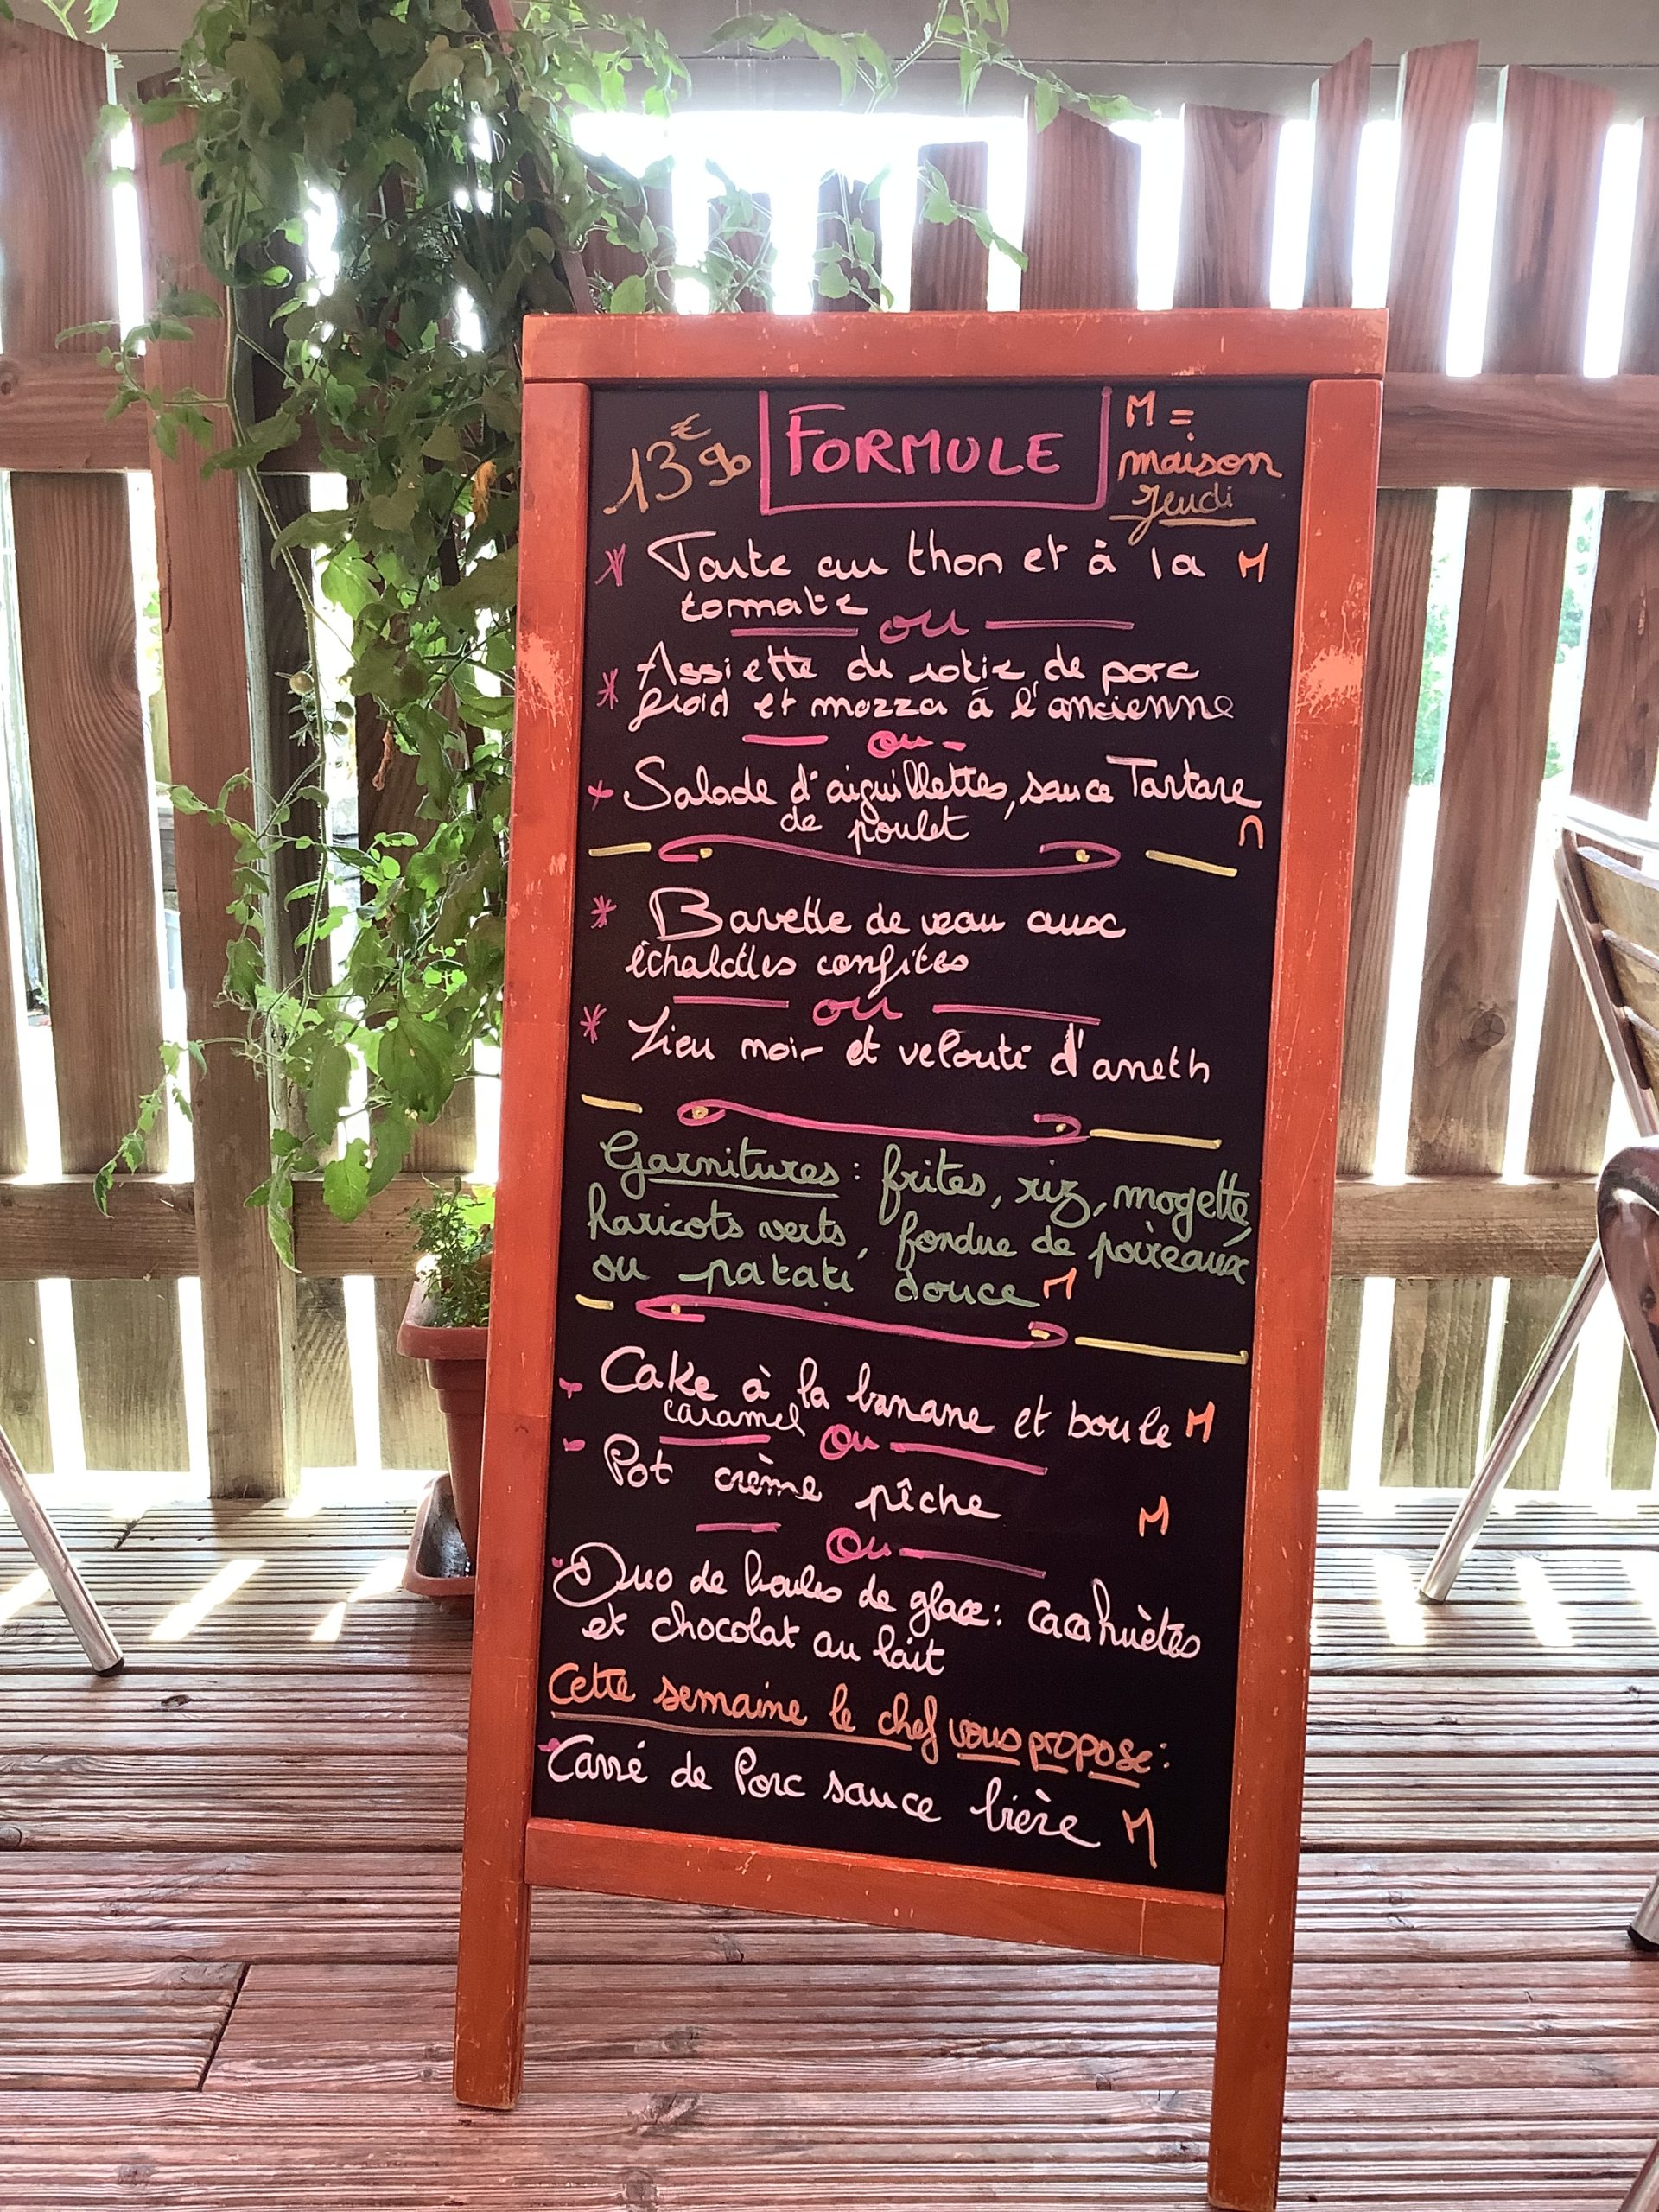 13€90 FORMULE M =
maison
Jeudi
* Tarte au thon et à la M
tomate
ou
* Assiette de rotie de porc
froid et mozza à l'ancienne
ou
* Salade d'aiguillettes, sauce Tartare
de poulet M
* Bavette de veau aux
échalottes confites
ou
* Lieu noir et velouté d'aneth
Garnitures : frites, riz, mogette,
haricots verts, fondue de poireaux
ou patate douce M
Cake à la banane et boule M
caramel
Ou
Pot crème pêche M
Ou
Duo de boules de glace : cacahuètes
et chocolat au lait
Cette semaine le chef vous propose :
Carré de Porc sauce bière M